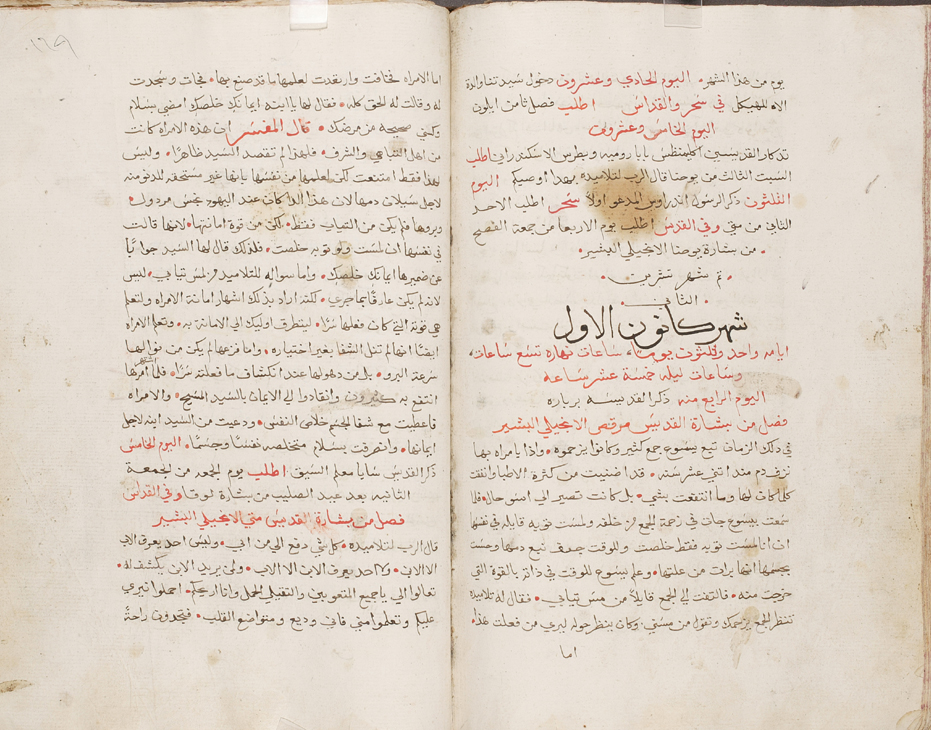 يوم من هذا الشهر • اليوم الحادي وعشرون دخول سيدتنا والدة
الاه الهيكل في سحر والقداس اطلب فصل ثامن ايلون
اليوم الخامس وعشرون
تذكار القديسين اكليمنظس بابا روميه وبطرس الاسكندراني اطلب
السبت الثالث من يوحنا قال الرب لتلاميذه بهذا اوصيكم اليوم
الثلثون ذكر الرسول اندراوس المدعو اولاً سحر اطلب الاحد
الثاني من متي وفي القدس اطلب يوم الاربعا من جمعة الفصح
• من بشارة يوحنا الانجيلي البشير •
• تم شهر تشرين •
• الثاني •
شهر كانون الاول
ايامه واحد وثلثون يوماً، ساعات نهاره تسع ساعات،
وساعات ليله خمسة عشر ساعه
اليوم الرابع منه ذكر القديسه برباره
فصل من بشارة القديس مرقص الانجيلي البشير
في ذلك الزمان تبع يسوع جمع كثير وكانوا يزحموه • واذا بامراه بها
نزف دم منذ اتني عشر سنه • قد اضنيت من كثرة الاطبا وانفقت
كلما كان لها وما انتفعت بشي • بل كانت تصير الي اسو حال • فلما
سمعت بيسوع جات في زحمة الجمع من خلفه ولمست ثوبه قايله في نفسها
ان انا لمست ثوبه فقط خلصت وللوقت جف نبع دمها وحست
بجسمها انها برات من علتها • وعلم يسوع للوقت في ذاته بالقوة التي
خرجت منه • فالتفت الي الجمع قايلاً من مس ثيابي • فقال له تلاميذه
تنظر الجمع يزحمك وتقول من مسني • وكان ينظر حوله ليري من فعلت هذا •
اما
١٦٩
اما الامراه فخافت وارتعدت لعلمها ما قد صنع بها • فجات وسجدت
له وقالت له الحق كله • فقال لها يا ابنه ايمانك خلصك امضي بسلام
وكني صحيحة من مرضك • قال المفسر ان هذه الامراه كانت
من اهل التباعي والشرف • فلهذا لم تقصد السيد ظاهراً • وليس
لهذا فقط امتنعت لكن لعلمها من نفسها بانها غير مستحقه للدنو منه
لاجل سيلان دمها لان هذا الدا كان عند اليهود نجس مردول •
وبروها فلم يكن من الثياب فقط • لكن من قوة امانتها • لانها قالت
في نفسها ان لمست ولو ثوبه خلصت • فلذلك قال لها السيد جواباً
عن ضميرها ايمانك خلصك • واما سواله للتلاميذ من لمس ثيابي • ليس
لانه لم يكن عارفاً بما جري • لكنه اراد بذلك اشهار امانة الامراه ولتعلم
هي قوته التي كان فعلها سراً • ليتطرق اوليك الي الامانة به • وتعلم الامراه
ايضاً انها لم تنل الشفا بغير اختياره • واما فزعها لم يكن من نوالها
سرعة البرو • بل من دهولها عند انكشاف ما فعلته سراً • فلما اشهر امرها
انتفع به كثيرون وانقادوا الي الايمان بالسيد المسيح • والامراه
فاعطيت مع شفا الجسم خلاص النفس • ودعيت من السيد ابنه لاجل
ايمانها • وانصرفت بسلام متخلصه نفساً وجسماً • اليوم الخامس
ذكر القديس سابا معلم السيق اطلب يوم الجمعه من الجمعة
الثانيه بعد عيد الصليب من بشارة لوقا وفي القداس
فصل من بشارة القديس متي الانجيلي البشير
قال الرب لتلاميذه • كل شي دفع الي من ابي • وليس احد يعرف الاب
الا الابن • ولا احد يعرف الابن الا الاب • ولمن يريد الابن يكشف له •
تعالوا الي يا جميع المتعوبين والثقيلي الحمل وانا اريحكم • احملوا نيري
عليكم وتعلموا مني فاني وديع ومتواضع القلب • فتجدون راحةً